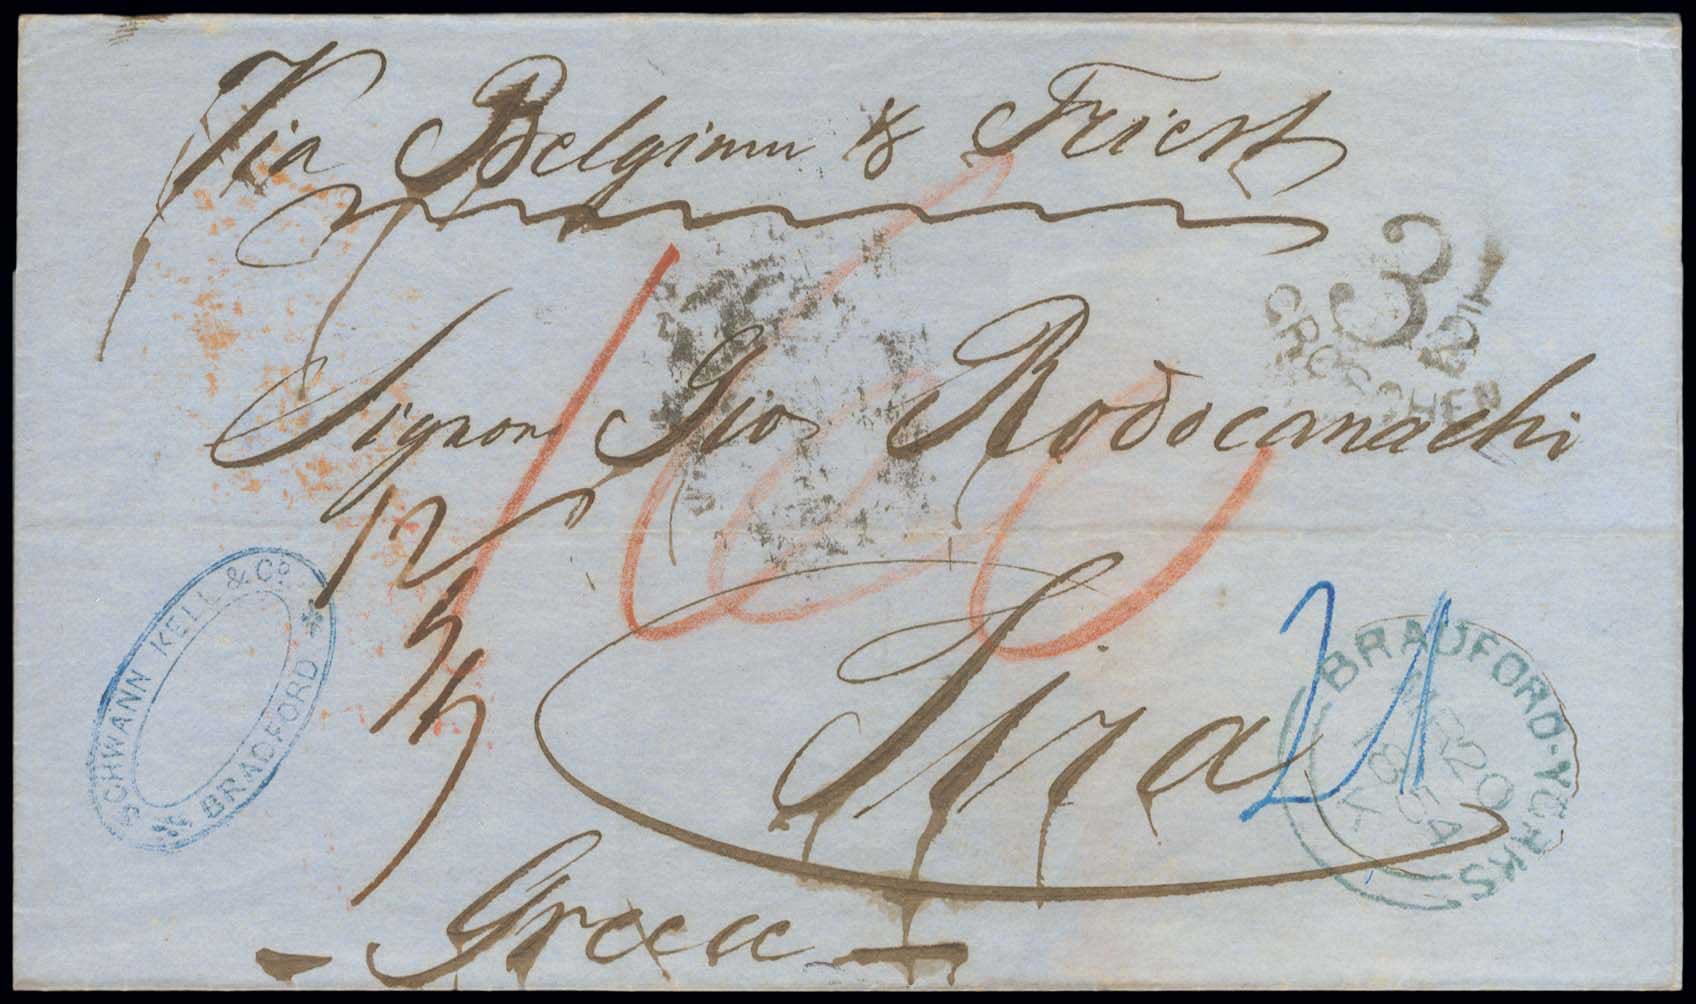 Via Belgium & Triest
3 1/2
GROSCHEN
Signor Gio Rodocanachi
Sira
Greece
SCHWANN KELL & Co
BRADFORD
BRADFORD-YORKS
MR 20
1854
21